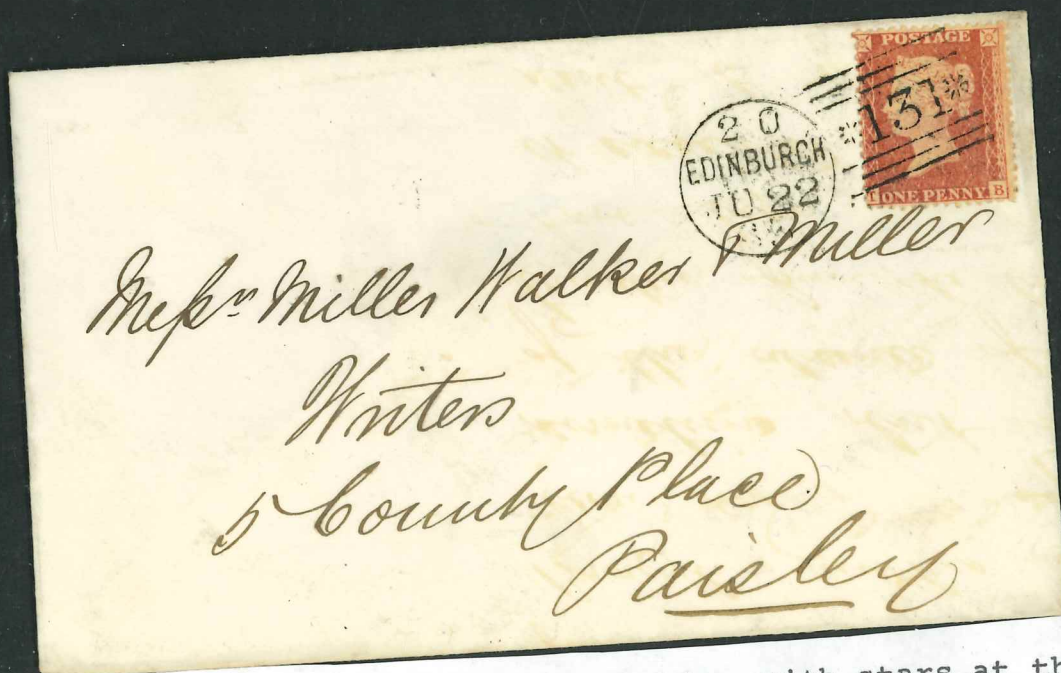 POSTAGE
*131*
ONE PENNY B
2 0
EDINBURGH
JU 22
Messrs Miller Walker & Miller
Writers
5 County Place
Paisley
with stars at th